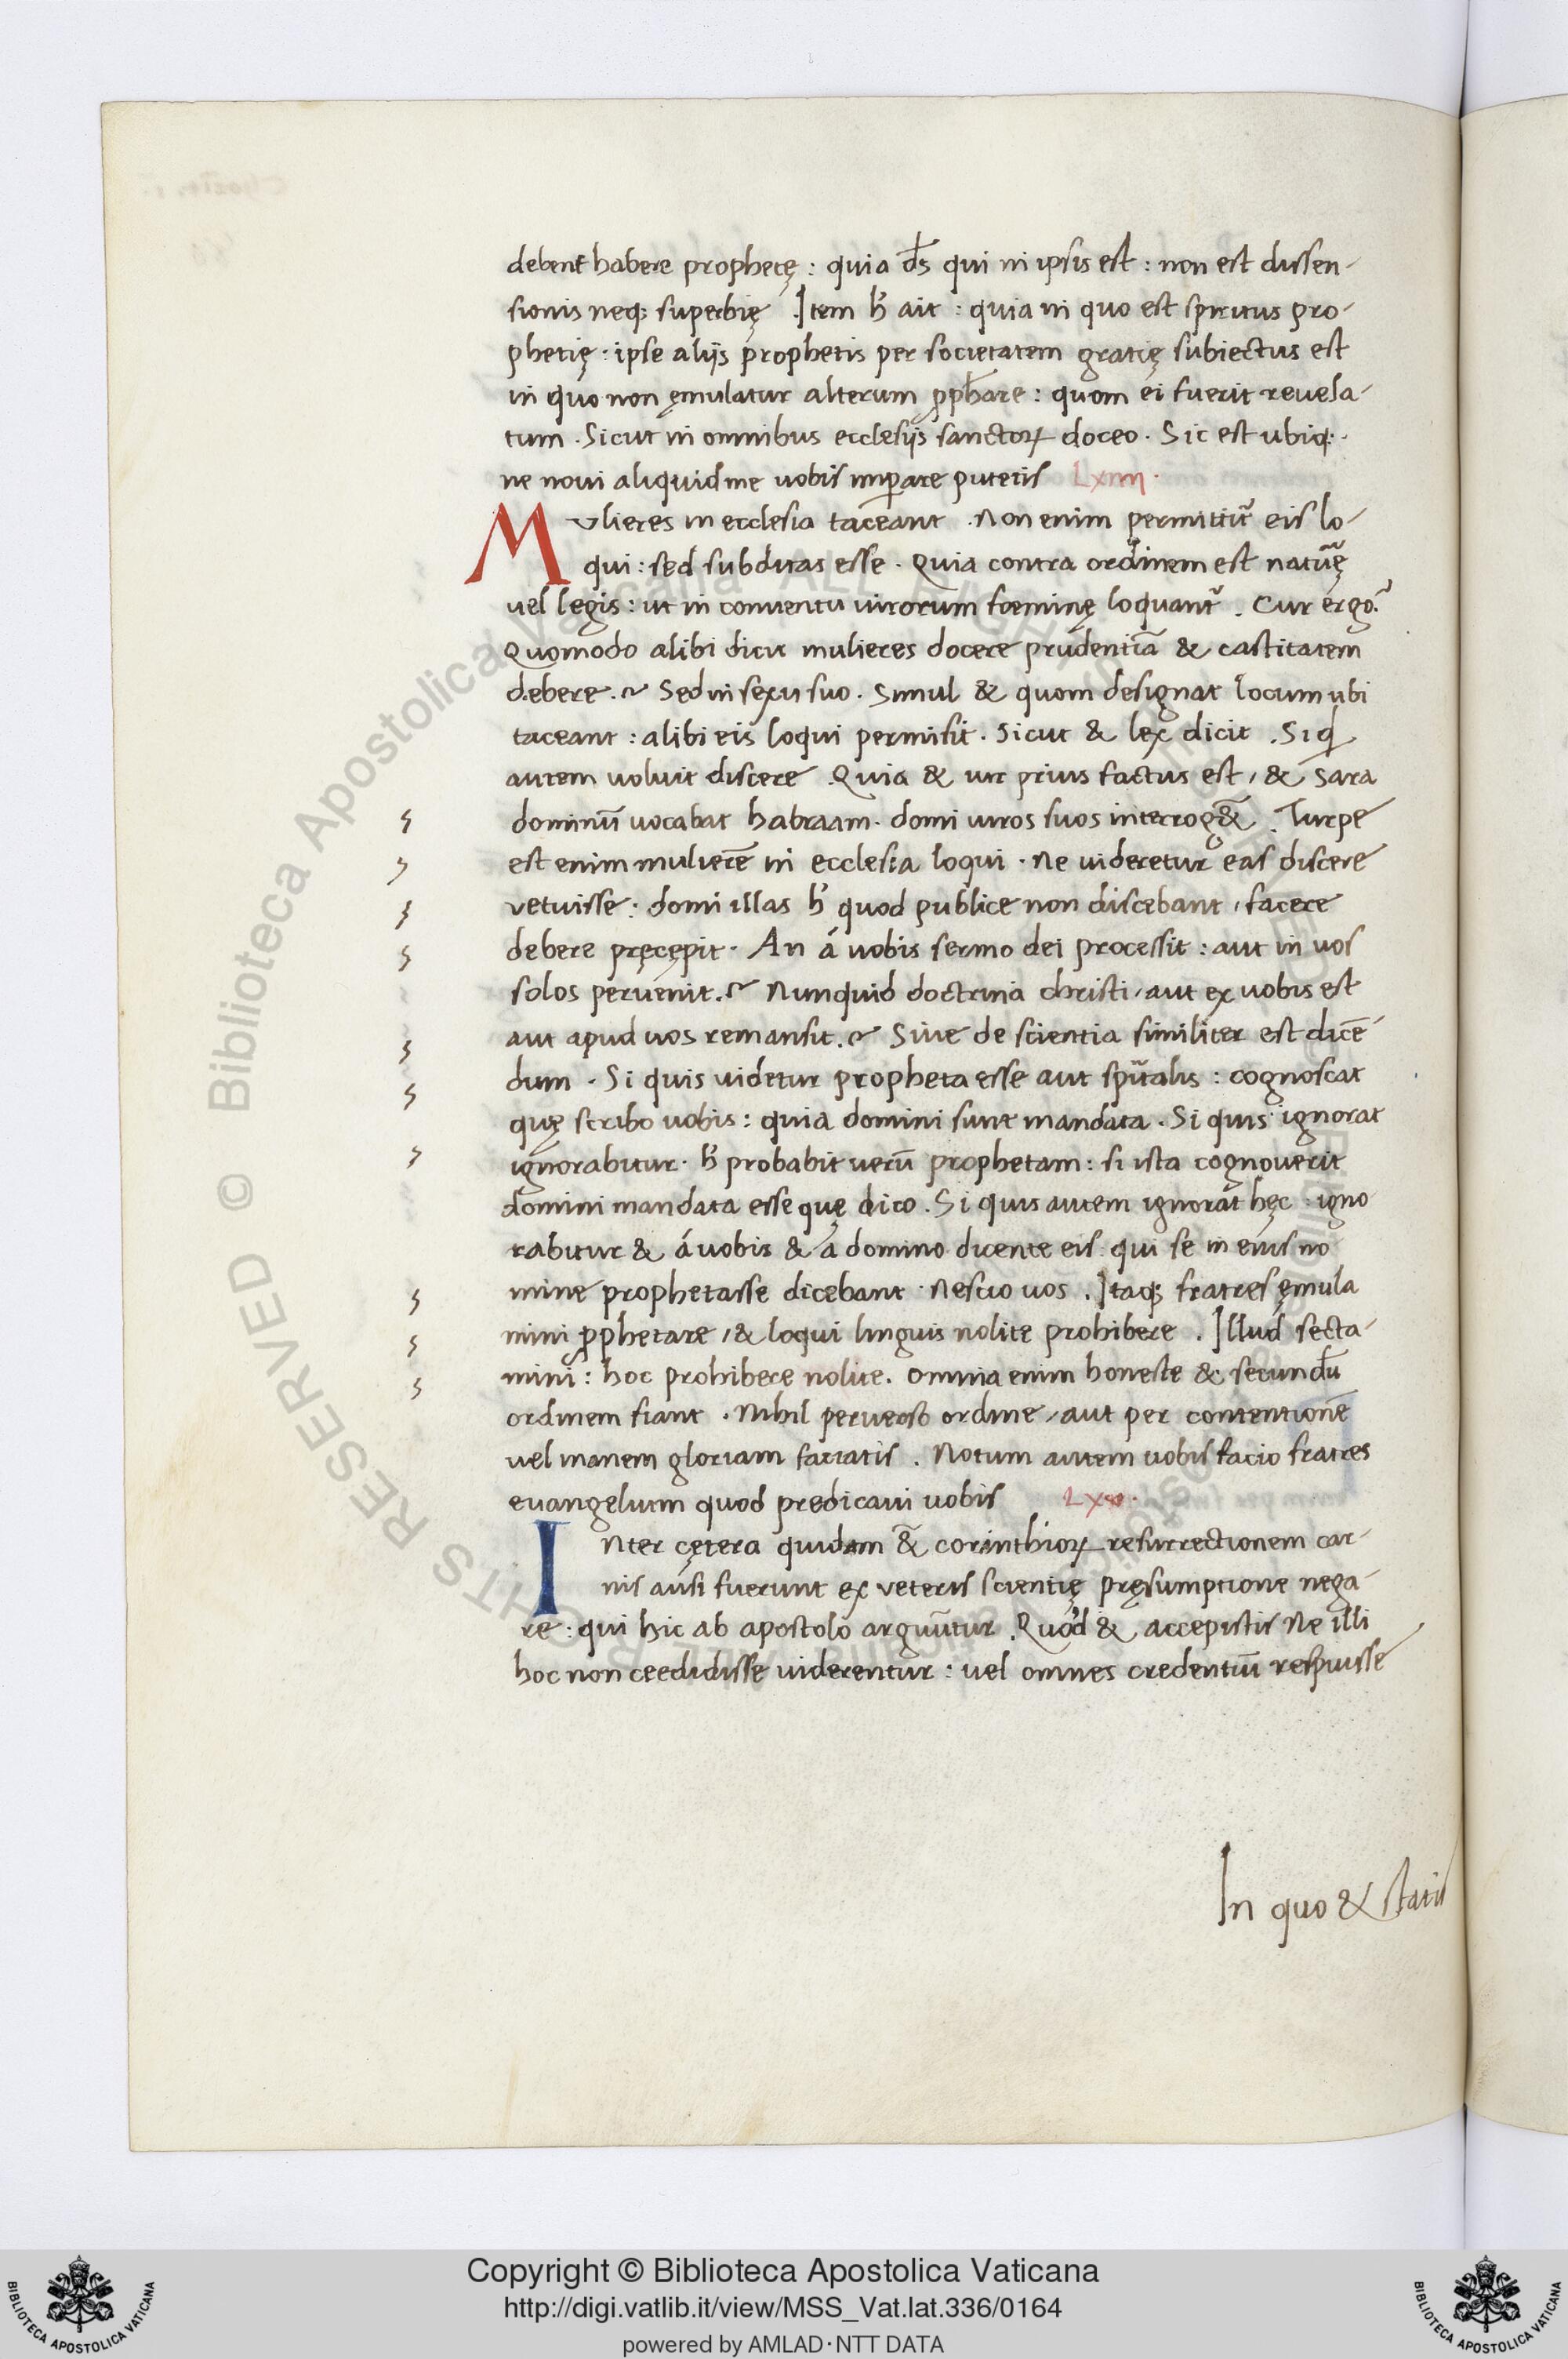 debent habere prophetę : quia d̄s qui in ipsis est : non est dissen-
sionis neq; superbię . Item h̓ ait : quia in quo est spiritus pro-
phetię : ipse alijs prophetis per societatem gratię subiectus est
in quo non ęmulatur alterum ꝓph̄are : quom ei fuerit revela-
tum . Sicut in omnibus ecclesijs sanctoꝝ doceo . Sic est ubiq; .
ne novi aliquid me uobis imꝑare putetis Lxiiii .
Mulieres in ecclesia taceant . Non enim permittit̃ eis lo-
qui : sed subditas esse . Quia contra ordinem est natũę
vel legis : ut in conventu virorum foeminę loquant̃ . Cur ergo ?
Quomodo alibi dicit mulieres docere prudentiã & castitatem
debere .~ Sed in sexu suo . Simul & quom designat locum ubi
taceant : alibi eis loqui permisit . Sicut & lex dicit . Si qd
autem voluit discere . Quia & vir prius factus est , & Sara
dominũ vocabat habraam . domi viros suos interrog&̃ . Turpe
est enim mulierẽ in ecclesia loqui . Ne videretur eas discere
vetuisse : domi illas h̓ quod publice non discebant , facere
debere pręcępit . An á vobis sermo dei processit : aut in vos
solos pervenit .~ Nunquid doctrina christi , aut ex vobis est
aut apud vos remansit .~ Sive de scientia similiter est dicẽ-
dum . Si quis videtur propheta esse aut spũalis : cognoscat
quę scribo vobis : quia domini sunt mandata . Si quis ignorat
ignorabitur . h̓ probabit verũ prophetam : si ista cognoverit
domini mandata esse quę dico . Si quis autem ignorat hęc . igno
rabitur & á vobis & á domino dicente eis : qui se in eius no
mine prophetasse dicebant . Nescio vos . Itaq; fratres ęmula
mini ꝓphetare , & loqui linguis nolite prohibere . Illud secta-
mini : hoc prohibere nolite . omnia enim honeste & secundũ
ordinem fiant . Nihil perverso ordine , aut per contentionẽ
vel inanem gloriam faciatis . Notum autem vobis facio fratres
evangelium quod predicavi vobis Lxv .
Inter cętera quidam &̃ corinthioꝝ resurrectionem car-
nis ausi fuerunt ex veteris scientię pręsumptione nega-
re : qui hic ab apostolo arguũtur . Quod & accepistis Ne illi
hoc non credidisse viderentur : vel omnes credentiũ respuisse
In quo & statis